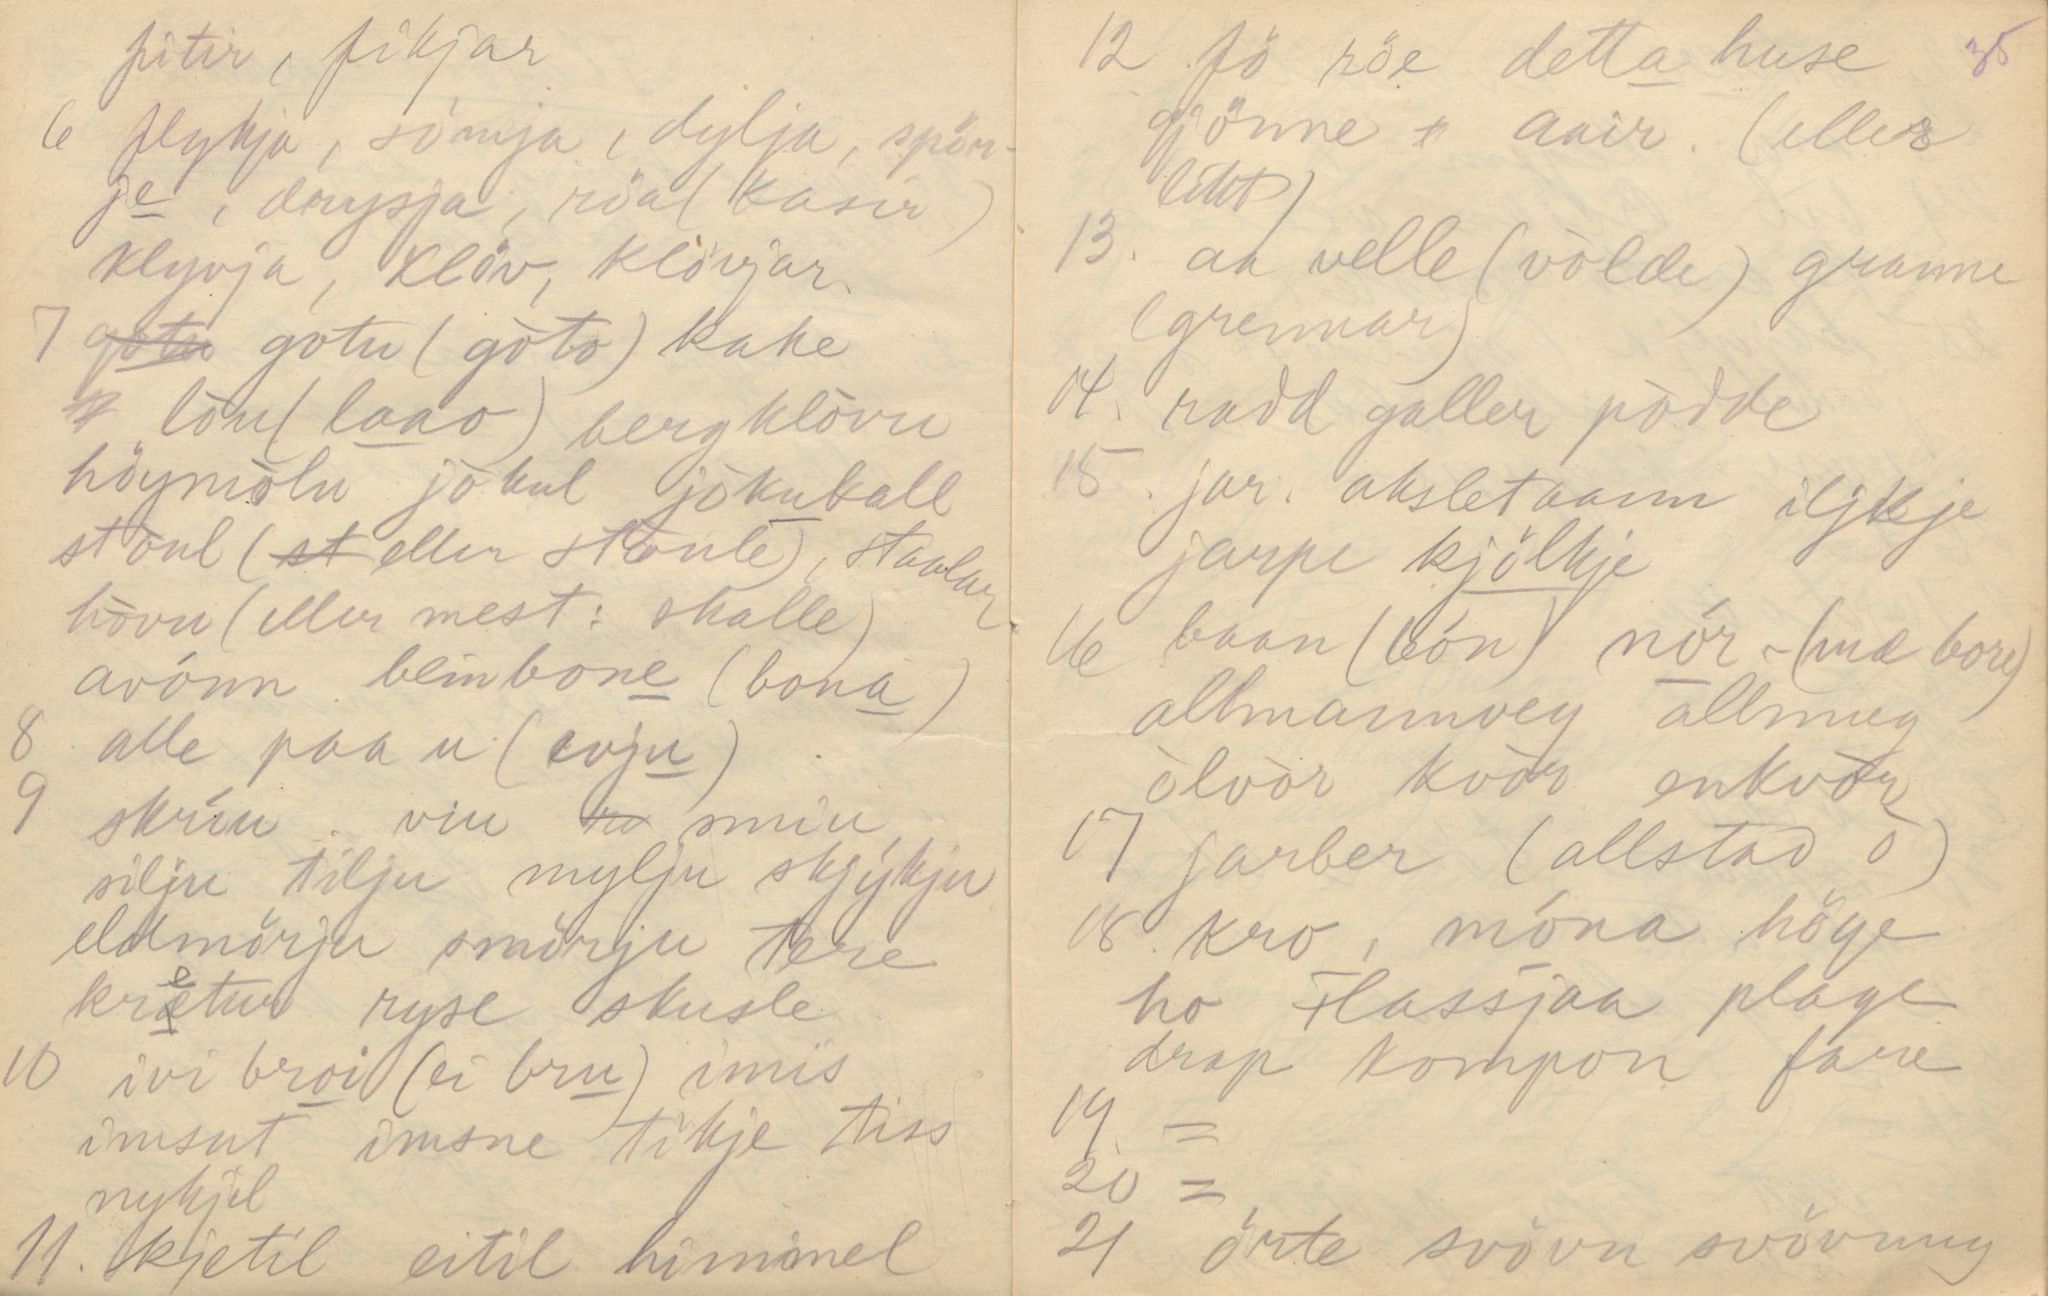 fitir, fikjar
6 flykja, sömja, dylja, spör-
je, drysja, röa (kasir)
klyvja, klöv, klövjar.
7 gotu gotu (gòto) kake
lòu (laao) bergklòvu
höymòlu jòkul jòkukall
stòul (st eller stòule), staular
hòvu (eller mest: skalle)
avónn beinbone (bona)
8 alle paa u (evju)
9 skríu. viu smiu
silju tilju mylju skjykju
eldmörju smörju tere
kretur ryse skusle
10 ivi broi (ei bru) imis
imsut imsne tikje tiss
nykjil
11. kjetil eitil himmel
12 fö röe detta huse 35
gjönne aair. (eller
likt)
13. aa velle (vòlde) granne
(grennar)
14. radd galler pòdde
15. jar. aksletaann iljkje
jarpe kjölkje
16 baan (bón) nór - (und bore)
allmannveg allmug
òlvòr kvòr enkvòr
17 jarber (allstad ò)
18. kro, móna höge
ho Flassjaa plage
drap kompon fare
19. =
20 =
21 örte svövu svövnug